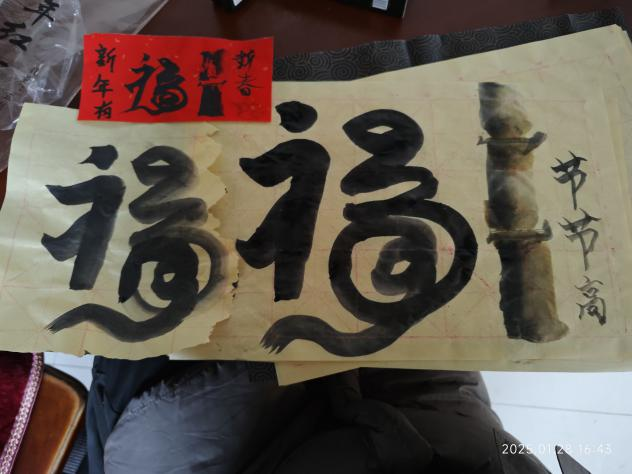 新年有
福
新春
福
福
节节高
2025.01.28 16:43